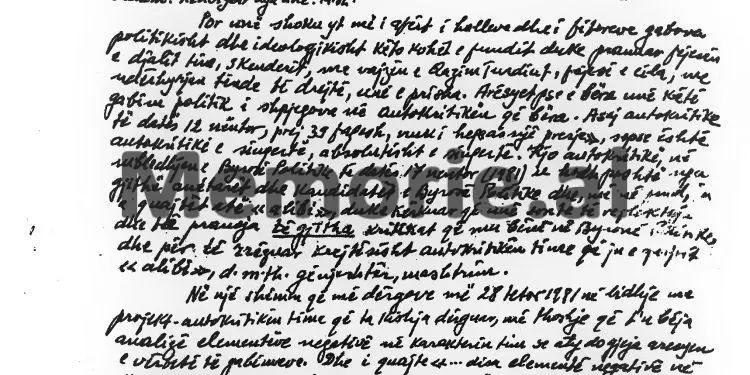 Por unë shoku yt më i afërt i halleve dhe i fitoreve gabova
politikisht dhe ideologjikisht këto kohët e fundit duke pranuar fejesën
e djalit tim, Skenderit, me vajzën e Qazim Turdiut, fejesë e cila, me
ndërhyrjen tënde të drejtë, unë e prisha. Arësyet pse e bëra unë këtë
gabim politik i shpjegova në autokritikën që bëra. Asaj autokritike
të datës 12 nëntor, prej 39 faqesh, nuk i heq as një presje, sepse është
autokritikë e sinqertë, absolutisht e sinqertë. Kjo autokritikë, në
mbledhjen e Byrosë Politike të datës 17 nëntor (1981) u kodh poshtë nga
gjithë anëtarët dhe kandidatët e Byrosë Politike dhe, më në fund,
e quajtët atë «alibi», duke kërkuar që unë të reflektoja
dhe të pranoja të gjitha kritikat që mu bënë në Byronë Politike
dhe për të rrëzuar krejtësisht autokritikën time që ju e quajtët
«alibi», d.m.th. gënjeshtër, mashtrim.
Në një shënim që më dërgove më 28 tetor 1981 në lidhje me
projekt-autokritikën time që ta kisha dërguar, më thoshje që t'u bëja
analizë elementëve negativë në karakterin tim se aty do gjeja arësyen
e vërtetë të gabimeve. Dhe i quajte «... disa elementë negativë në
Memorie.al